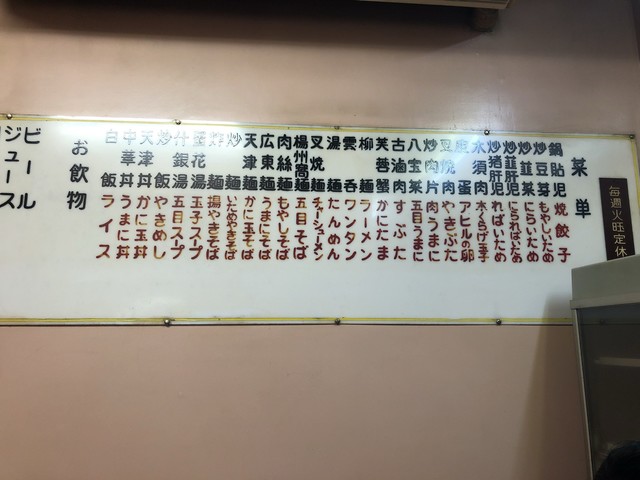 毎週火旺定休
菜単
鍋貼児 焼餃子
炒豆芽 もやしいため
炒韮菜 にらいため
炒韮肝児 にらればいため
炒猪肝児 ればいため
木須肉 木くらげ玉子
蛋 アヒルの卵
豆焼肉 やきぶた
炒肉片 肉うまに
八宝菜 五目うまに
古滷肉 すぶた
芙蓉蟹 かにたま
柳麺 ラーメン
雲呑 ワンタン
湯麺 たんめん
叉焼麺 チャーシューメン
楊州窩麺 五目そば
肉絲麺 もやしそば
広東麺 うまにそば
天津麺 かに玉そば
炒麺 いためやきそば
炸麺 揚やきそば
蛋花湯 玉子スープ
什錦湯 五目スープ
炒飯 やきめし
天津丼 かに玉丼
中華丼 うまに丼
白飯 ライス
お飲物
ビール
ジュース